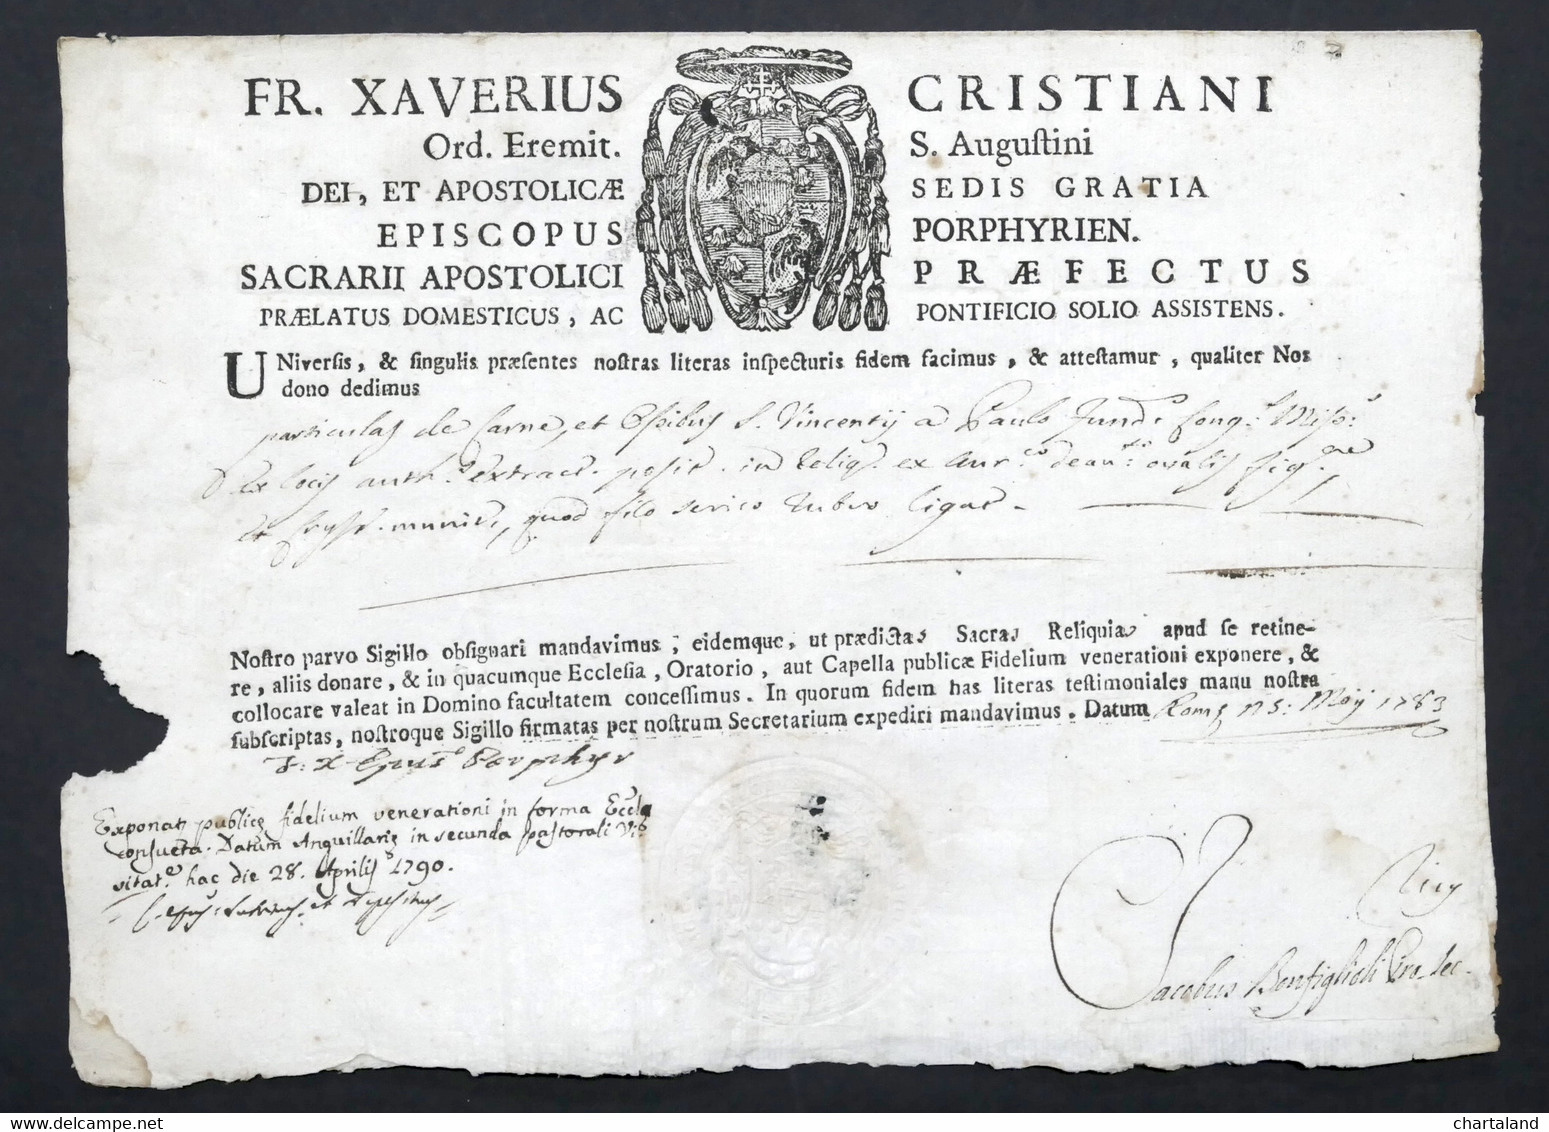 FR. XAVERIUS CRISTIANI
Ord. Eremit. S. Auguſtini
DEI, ET APOSTOLICÆ SEDIS GRATIA
EPISCOPUS PORPHYRIEN.
SACRARII APOSTOLICI PRÆFECTUS
PRÆLATUS DOMESTICUS, AC PONTIFICIO SOLIO ASSISTENS.
UNiverſis, & ſingulis præſentes noſtras literas inſpecturis fidem facimus, & atteſtamur, qualiter Nos
dono dedimus
particulas de Carne, et Ossibus S. Vincentij a Paulo Fund: Cong: Miss:
ex locis auth: extract. posit. in Reliq. ex Aur:co deau: ovalis fig:
et Cryst. munit, quod filo serico rubro ligat.
Noſtro parvo Sigillo obſignari mandavimus; eidemque, ut prædictas Sacras Reliquias apud ſe retine-
re, aliis donare, & in quacumque Eccleſia, Oratorio, aut Capella publicæ Fidelium venerationi exponere, &
collocare valeat in Domino facultatem conceſſimus. In quorum fidem has literas teſtimoniales manu noſtra
ſubſcriptas, noſtroque Sigillo firmatas per noſtrum Secretarium expediri mandavimus. Datum Romę 15: Maij 1783
F: X Epus Porphyr
Exponat publicę fidelium venerationi in forma Eccla
consueta. Datum Anguillarię in secunda pastorali Vi
sitat.e hac die 28. Aprilis 1790.
Jacobus Bonfiglioli Pro-Sec.
chartaland